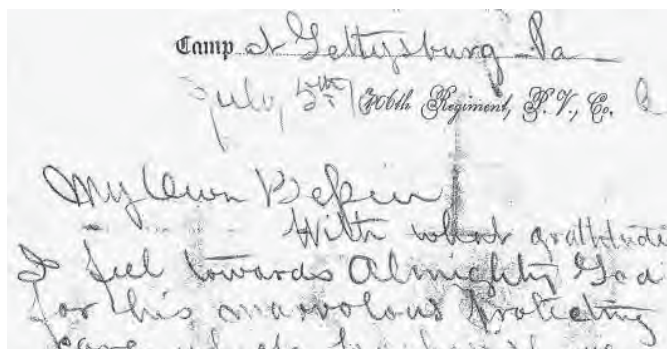 Camp at Gettysburg Pa
July 5th 106th Regiment, P. V., Co.
My Own
With what gratitude
I feel towards Almighty God
for his marvolous Protecting
care